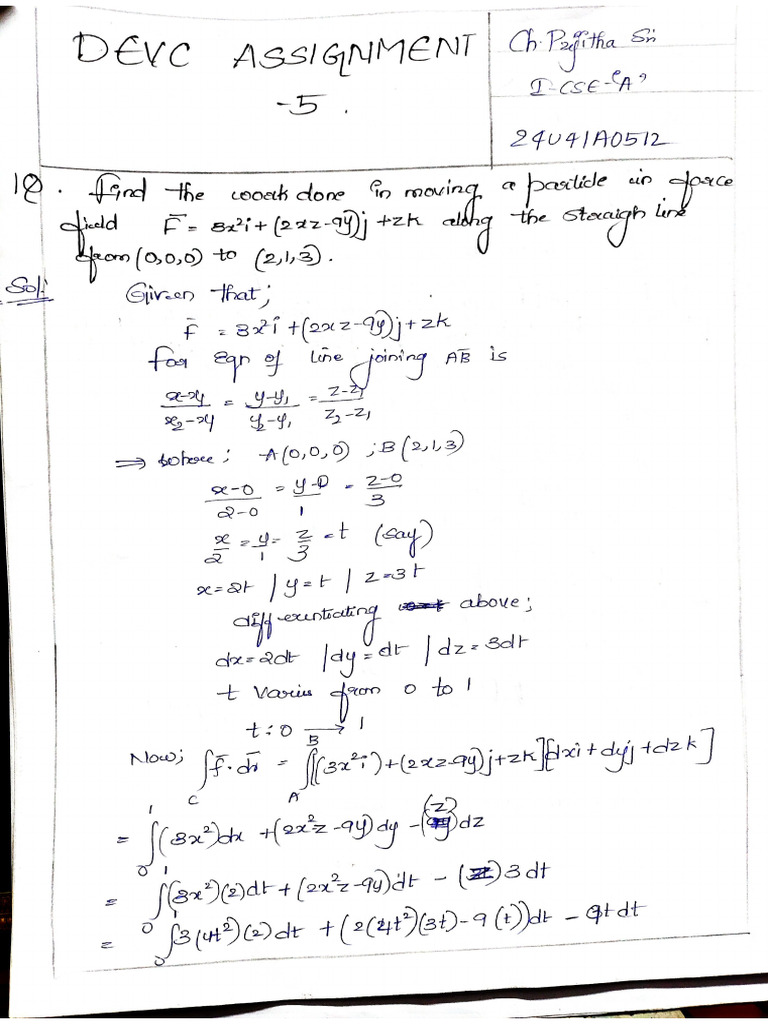 DEVC ASSIGNMENT
-5.
Ch. Pujitha Sri
I-CSE-'A'
24U41A0512
1Q. find the work done in moving a particle in force
field F̄ = 3x²i + (2xz-9y)j + zk along the straigh line
from (0,0,0) to (2,1,3).
Sol:
Given that;
F̄ = 3x²i + (2xz-9y)j + zk
for Eqn of line joining AB̄ is
x-x₁/x₂-x₁ = y-y₁/y₂-y₁ = z-z₁/z₂-z₁
⇒ where; A(0,0,0) ; B(2,1,3)
x-0/2-0 = y-0/1 = z-0/3
x/2 = y/1 = z/3 = t (say)
x=2t / y=t / z=3t
differentiating above;
dx=2dt / dy=dt / dz=3dt
t varies from 0 to 1
t:0 → 1
Now; ∫_C f̄.dr̄ = ∫_A^B [(3x²i)+(2xz-9y)j+zk][dxi+dyj+dzk]
= ∫₀¹ (3x²)dx + (2x²z-9y)dy - (z)dz
= ∫₀¹ (3x²)(2)dt + (2x²z-9y)dt - (z)3dt
= ∫₀¹ 3(4t²)(2)dt + (2(4t²)(3t)-9(t))dt - 9t dt